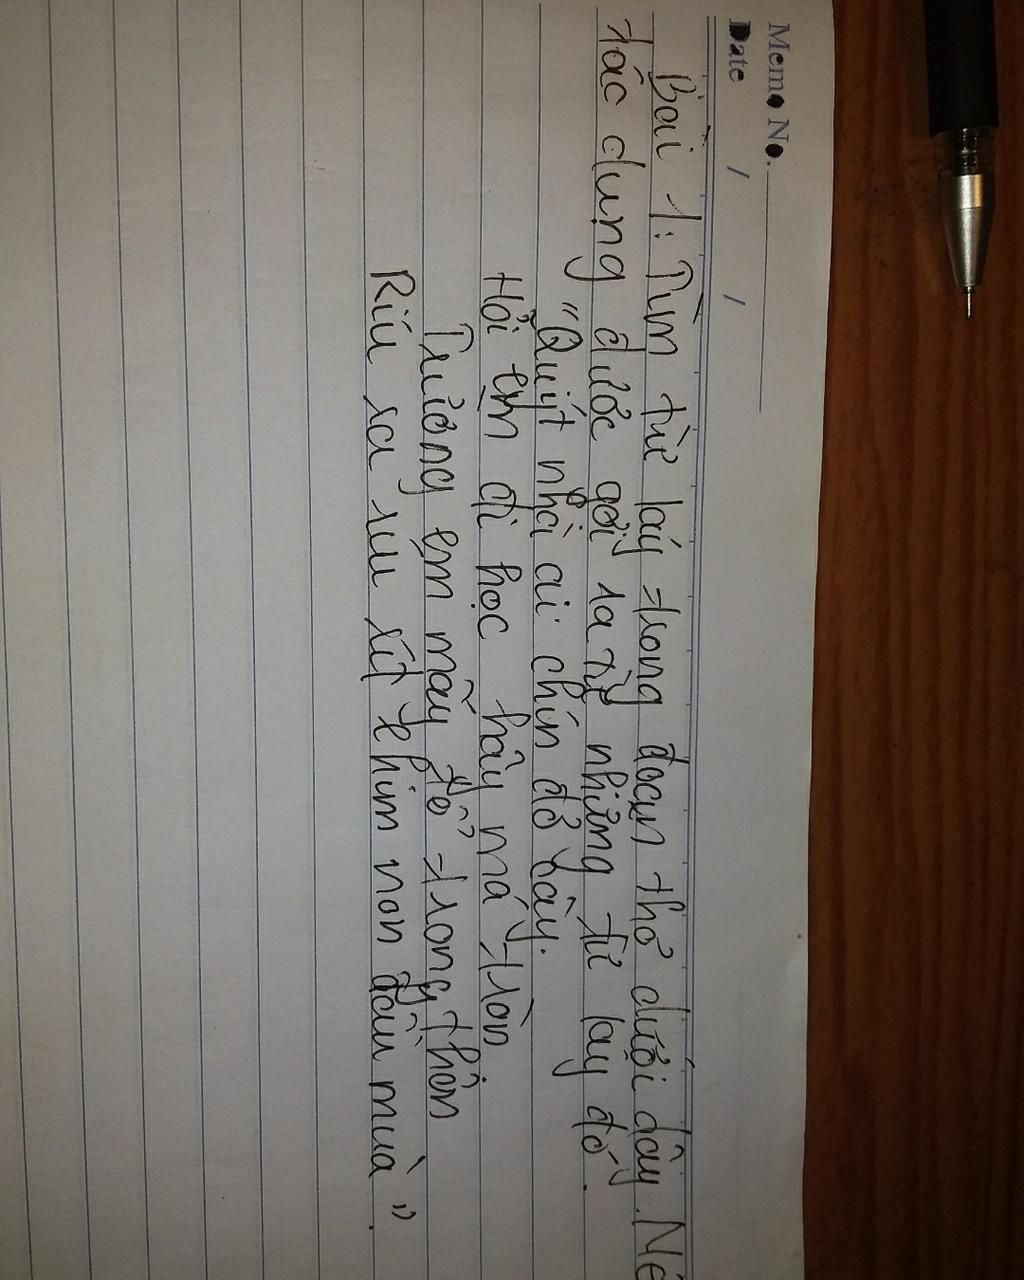 Memo No.
Date / /
Bài 1: Tìm từ láy trong đoạn thơ dưới đây. Nê
tác dụng được gợi ra từ những từ láy đó.
"Quýt nhà ai chín đỏ cây.
Hỏi em đi học hây má tròn
Trường em mấy tổ trong thôn
Ríu ra ríu rít chim non đầu mùa".